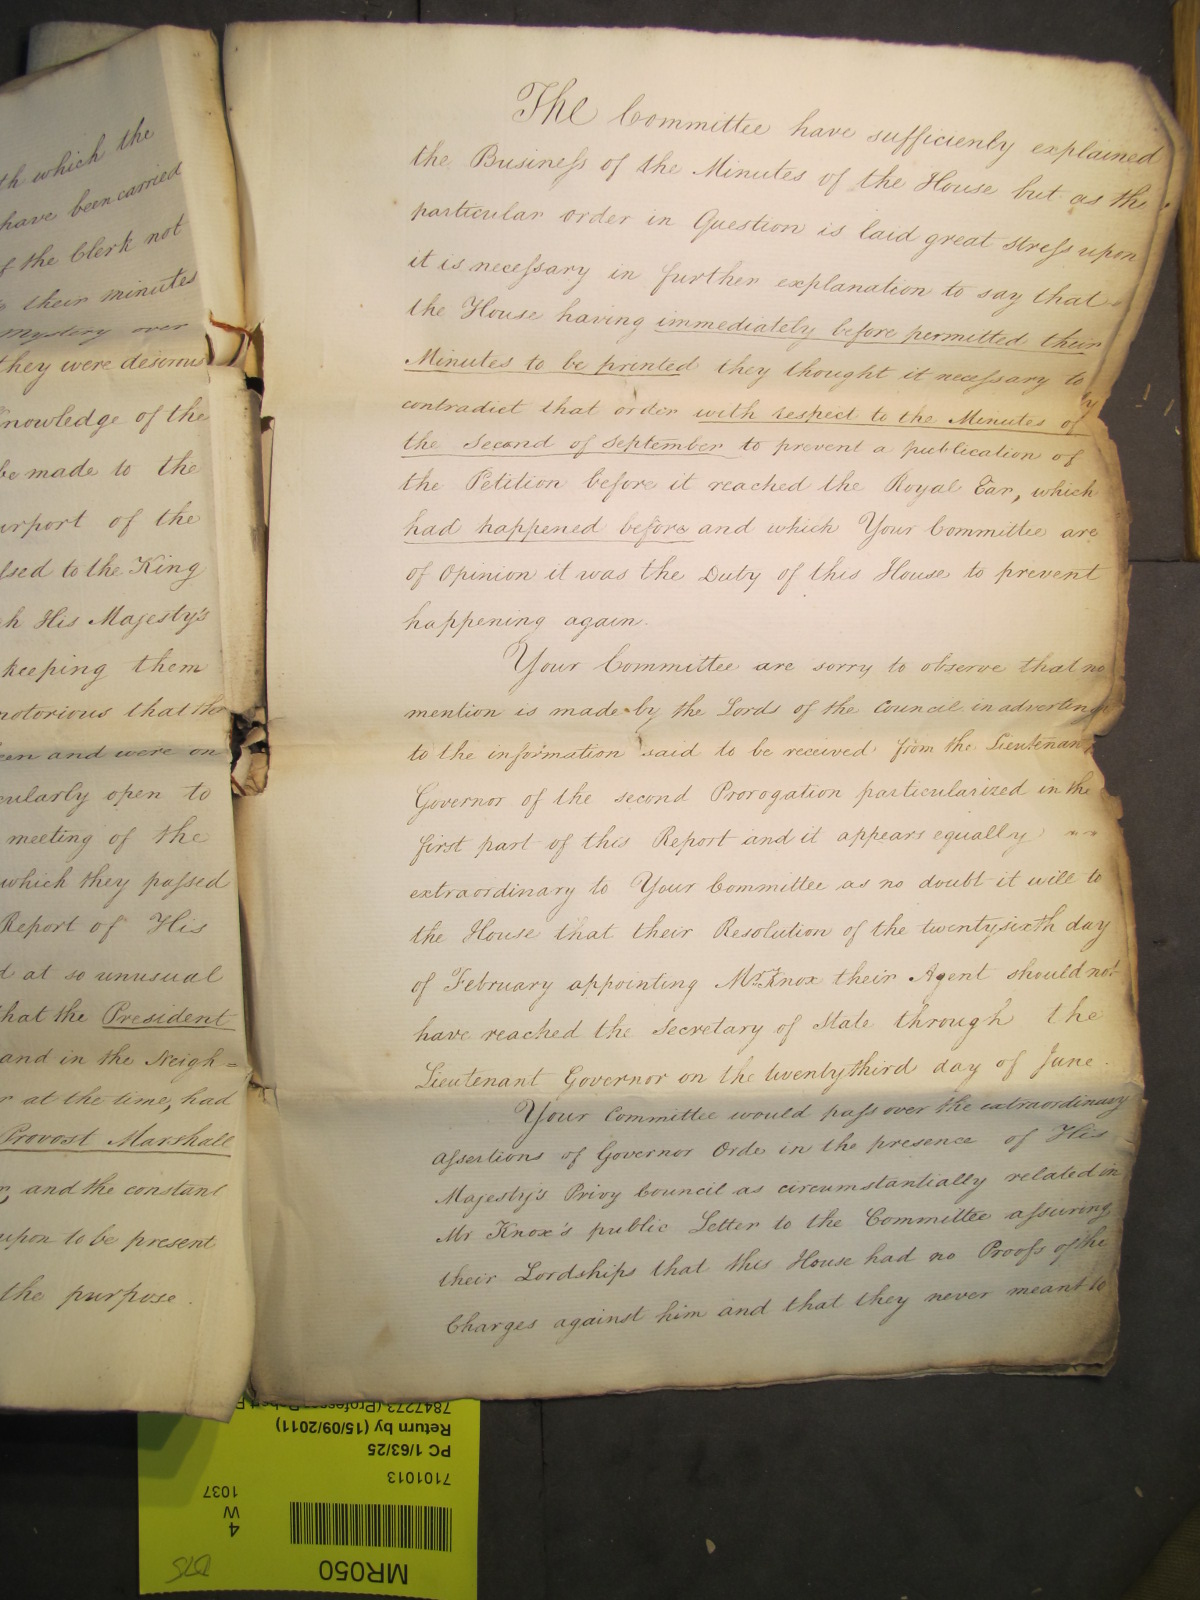 th which the
have been carried
f the Clerk not
their minutes
mystery over
they were desirous
knowledge of the
be made to the
urport of the
sed to the King
h His Majesty's
keeping them
notorious that the
een and were on
cularly open to
meeting of the
which they passed
Report of His
d at so unusual
that the President
and in the Neigh=
r at the time, had
Provost Marshall
r, and the constant
upon to be present
the purpose.
The Committee have sufficienly explained
the Business of the Minutes of the House but as the
particular order in Question is laid great stress upon
it is necessary in further explanation to say that
the House having immediately before permitted their
Minutes to be printed they thought it necessary to
contradict that order with respect to the Minutes of
the Second of September to prevent a publication of
the Petition before it reached the Royal Ear, which
had happened before and which Your Committee are
of Opinion it was the Duty of this House to prevent
happening again.
Your Committee are sorry to observe that no
mention is made by the Lords of the Council in adverting
to the information said to be received from the Lieutenan
Governor of the second Prorogation particularized in the
first part of this Report and it appears equally
extraordinary to Your Committee as no doubt it will to
the House that their Resolution of the twentysixth day
of February appointing Mr. Knox their Agent should not
have reached the Secretary of State through the
Lieutenant Governor on the twentythird day of June.
Your Committee would pass over the extraordinary
assertions of Governor Orde in the presence of His
Majesty's Privy Council as circumstantially related in
Mr Knox's public Letter to the Committee assuring
their Lordships that this House had no Proofs of the
Charges against him and that they never meant to
7847273 (Professor
Return by (15/09/2011)
PC 1/63/25
7101013
4
W
1037
MR050